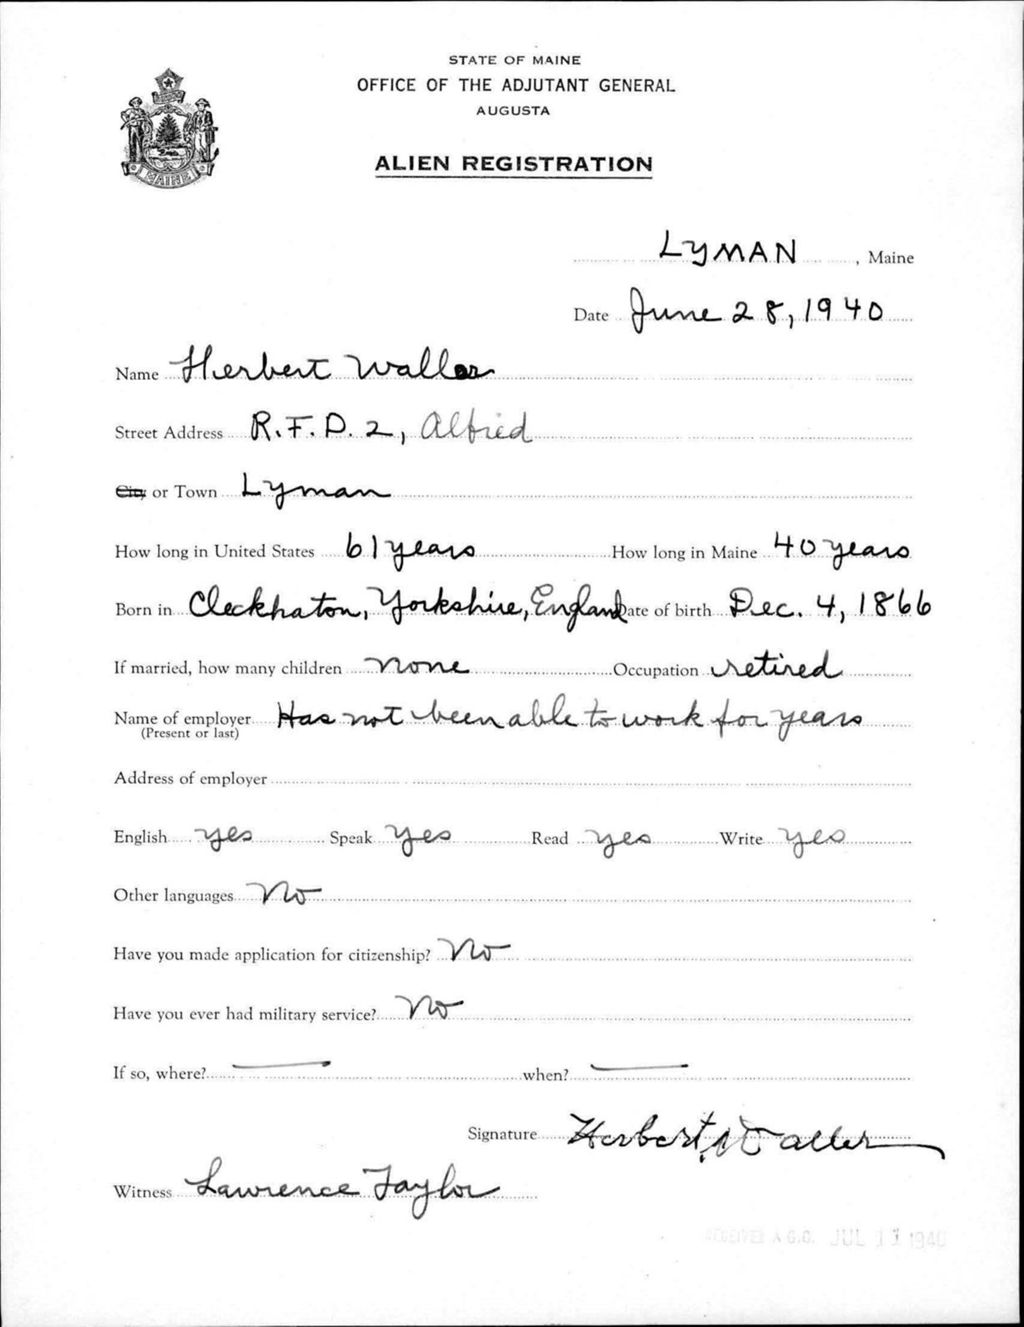 STATE OF MAINE
OFFICE OF THE ADJUTANT GENERAL
AUGUSTA
ALIEN REGISTRATION
MAINE
LYMAN, Maine
Date June 28, 1940
Name Herbert Waller
Street Address R.F.D. 2, Alfred
City or Town Lyman
How long in United States 61 years How long in Maine 40 years
Born in Cleckhaton, Yorkshire, England Date of birth Dec. 4, 1866
If married, how many children none Occupation retired
Name of employer Has not been able to work for years
(Present or last)
Address of employer
English yes Speak yes Read yes Write yes
Other languages No
Have you made application for citizenship? No
Have you ever had military service? No
If so, where? — when? —
Signature Herbert Waller
Witness Lawrence Taylor
RECEIVED A.G.O. JUL 1940